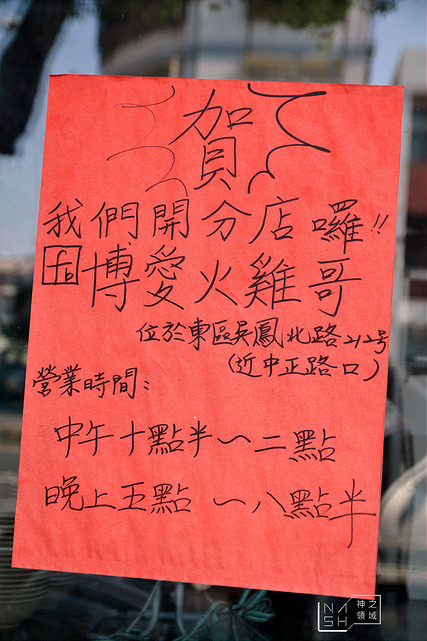 賀
我們開分店囉!!
fb 博愛火雞哥
位於東區吳鳳北路212号
(近中正路口)
營業時間:
中午十點半~二點
晚上五點~八點半
NISH 神之領域